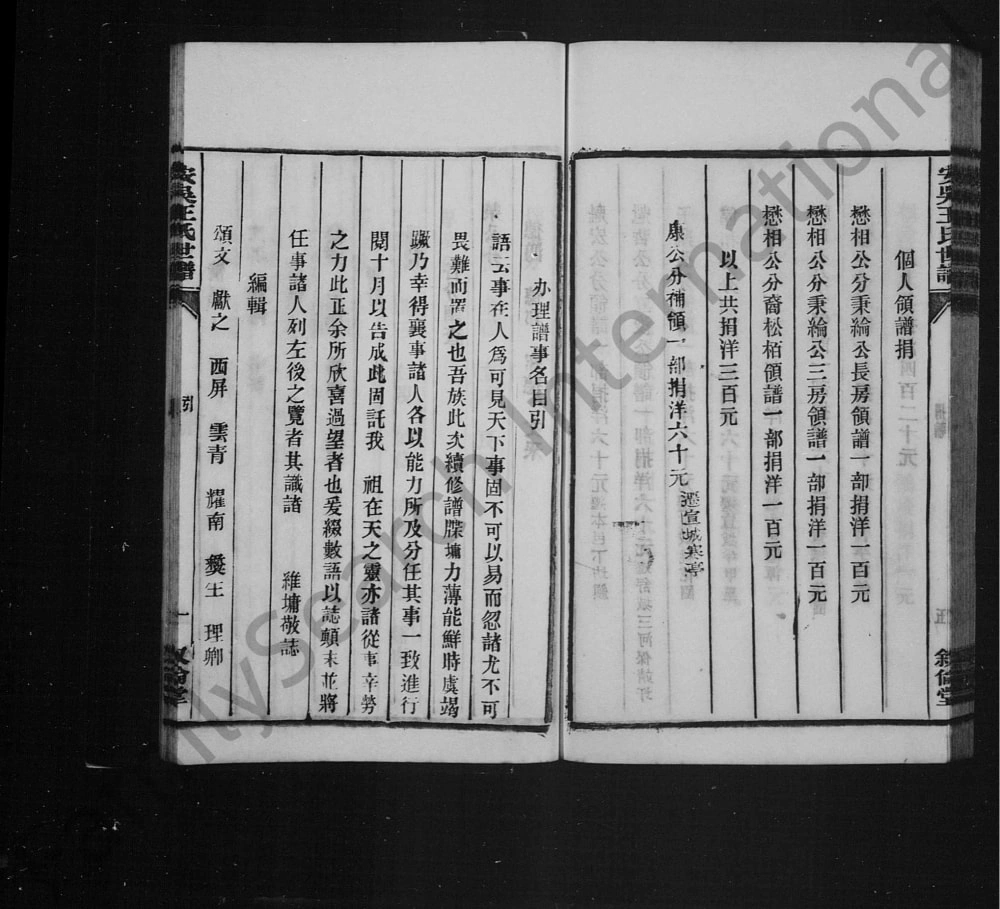 安吳王氏世譜
敘倫堂
個人領譜捐
懋相公分秉綸公長房領譜一部捐洋一百元
懋相公分秉綸公三房領譜一部捐洋一百元
懋相公分裔松栢領譜一部捐洋一百元
以上共捐洋三百元
康公分補領一部捐洋六十元 遷宣城寒亭
办理譜事名目引
語云事在人爲可見天下事固不可以易而忽諸尤不可
畏難而置之也吾族此次續修譜牒墉力薄能鮮時虞竭
蹶乃幸得襄事諸人各以能力所及分任其事一致進行
閱十月以告成此固託我 祖在天之靈亦諸從事辛勞
之力此正余所欣喜過望者也爰綴數語以誌顛末並將
任事諸人列左後之覽者其識諸 維墉敬誌
編輯
頌文 獻之 西屏 雲青 耀南 燮生 理卿
安吳王氏世譜
引
一
敘倫堂
FamilySearch International